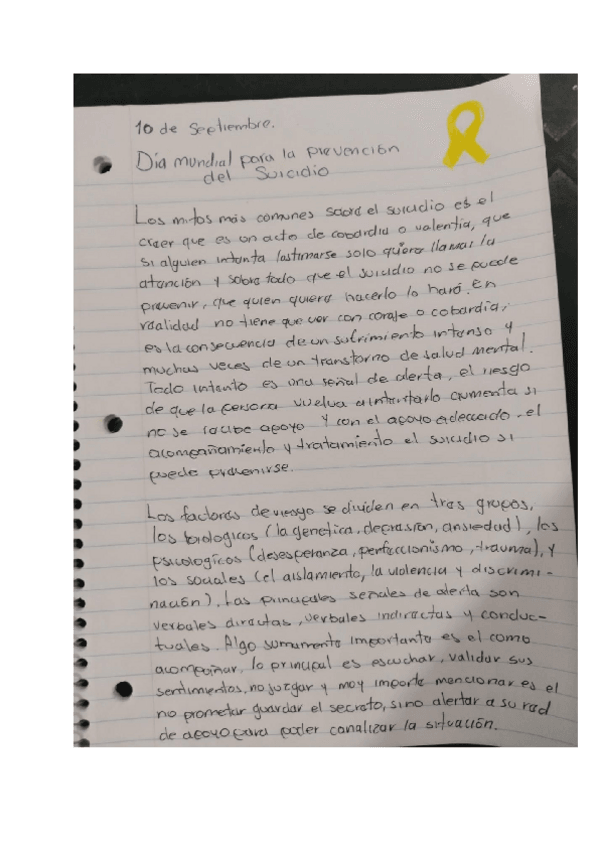 10 de Septiembre.
Día mundial para la prevención
del Suicidio
Los mitos más comunes sobre el suicidio es el
creer que es un acto de cobardía o valentía, que
si alguien intenta lastimarse solo quiere llamar la
atención y sobre todo que el suicidio no se puede
prevenir, que quien quiere hacerlo lo hará. en
realidad no tiene que ver con coraje o cobardía,
es la consecuencia de un sufrimiento intenso y
muchas veces de un transtorno de salud mental.
Todo intento es una señal de alerta, el riesgo
de que la persona vuelva a intentarlo aumenta si
no se recibe apoyo y con el apoyo adecuado, el
acompañamiento y tratamiento el suicidio si
puede prevenirse.
Los factores de riesgo se dividen en tres grupos,
los biologicos (la genética, depresión, ansiedad), los
psicologicos (desesperanza, perfeccionismo, trauma), y
los sociales (el aislamiento, la violencia y discrimi-
nación). Las principales señales de alerta son
verbales directas, verbales indirectas y conduc-
tuales. Algo sumamente importante es el como
acompañar, lo principal es escuchar, validar sus
sentimientos, no juzgar y muy importe mencionar es el
no prometer guardar el secreto, sino alertar a su red
de apoyo para poder canalizar la situación.